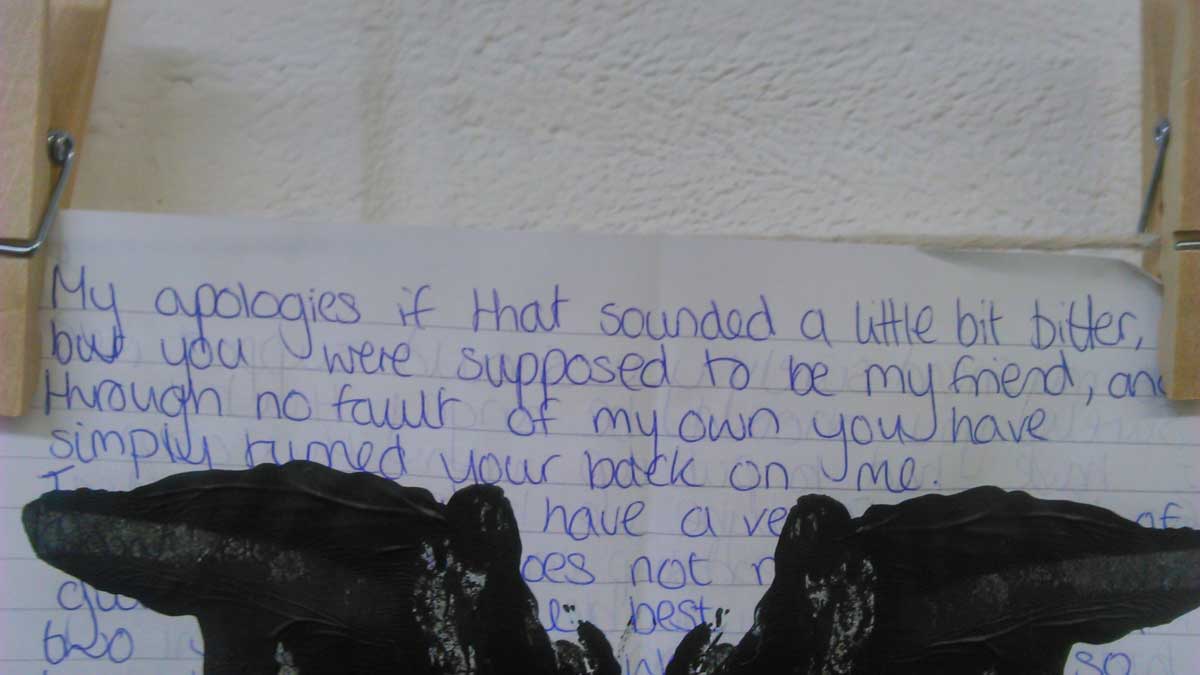 My apologies if that sounded a little bit bitter,
but you were supposed to be my friend, and
through no fault of my own you have
simply turned your back on me.
I have a of
not
best
two
so